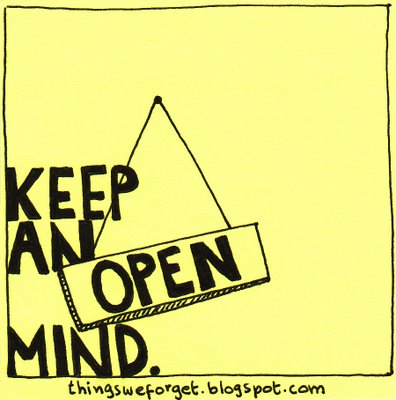 KEEP
AN
OPEN
MIND.
thingsweforget.blogspot.com